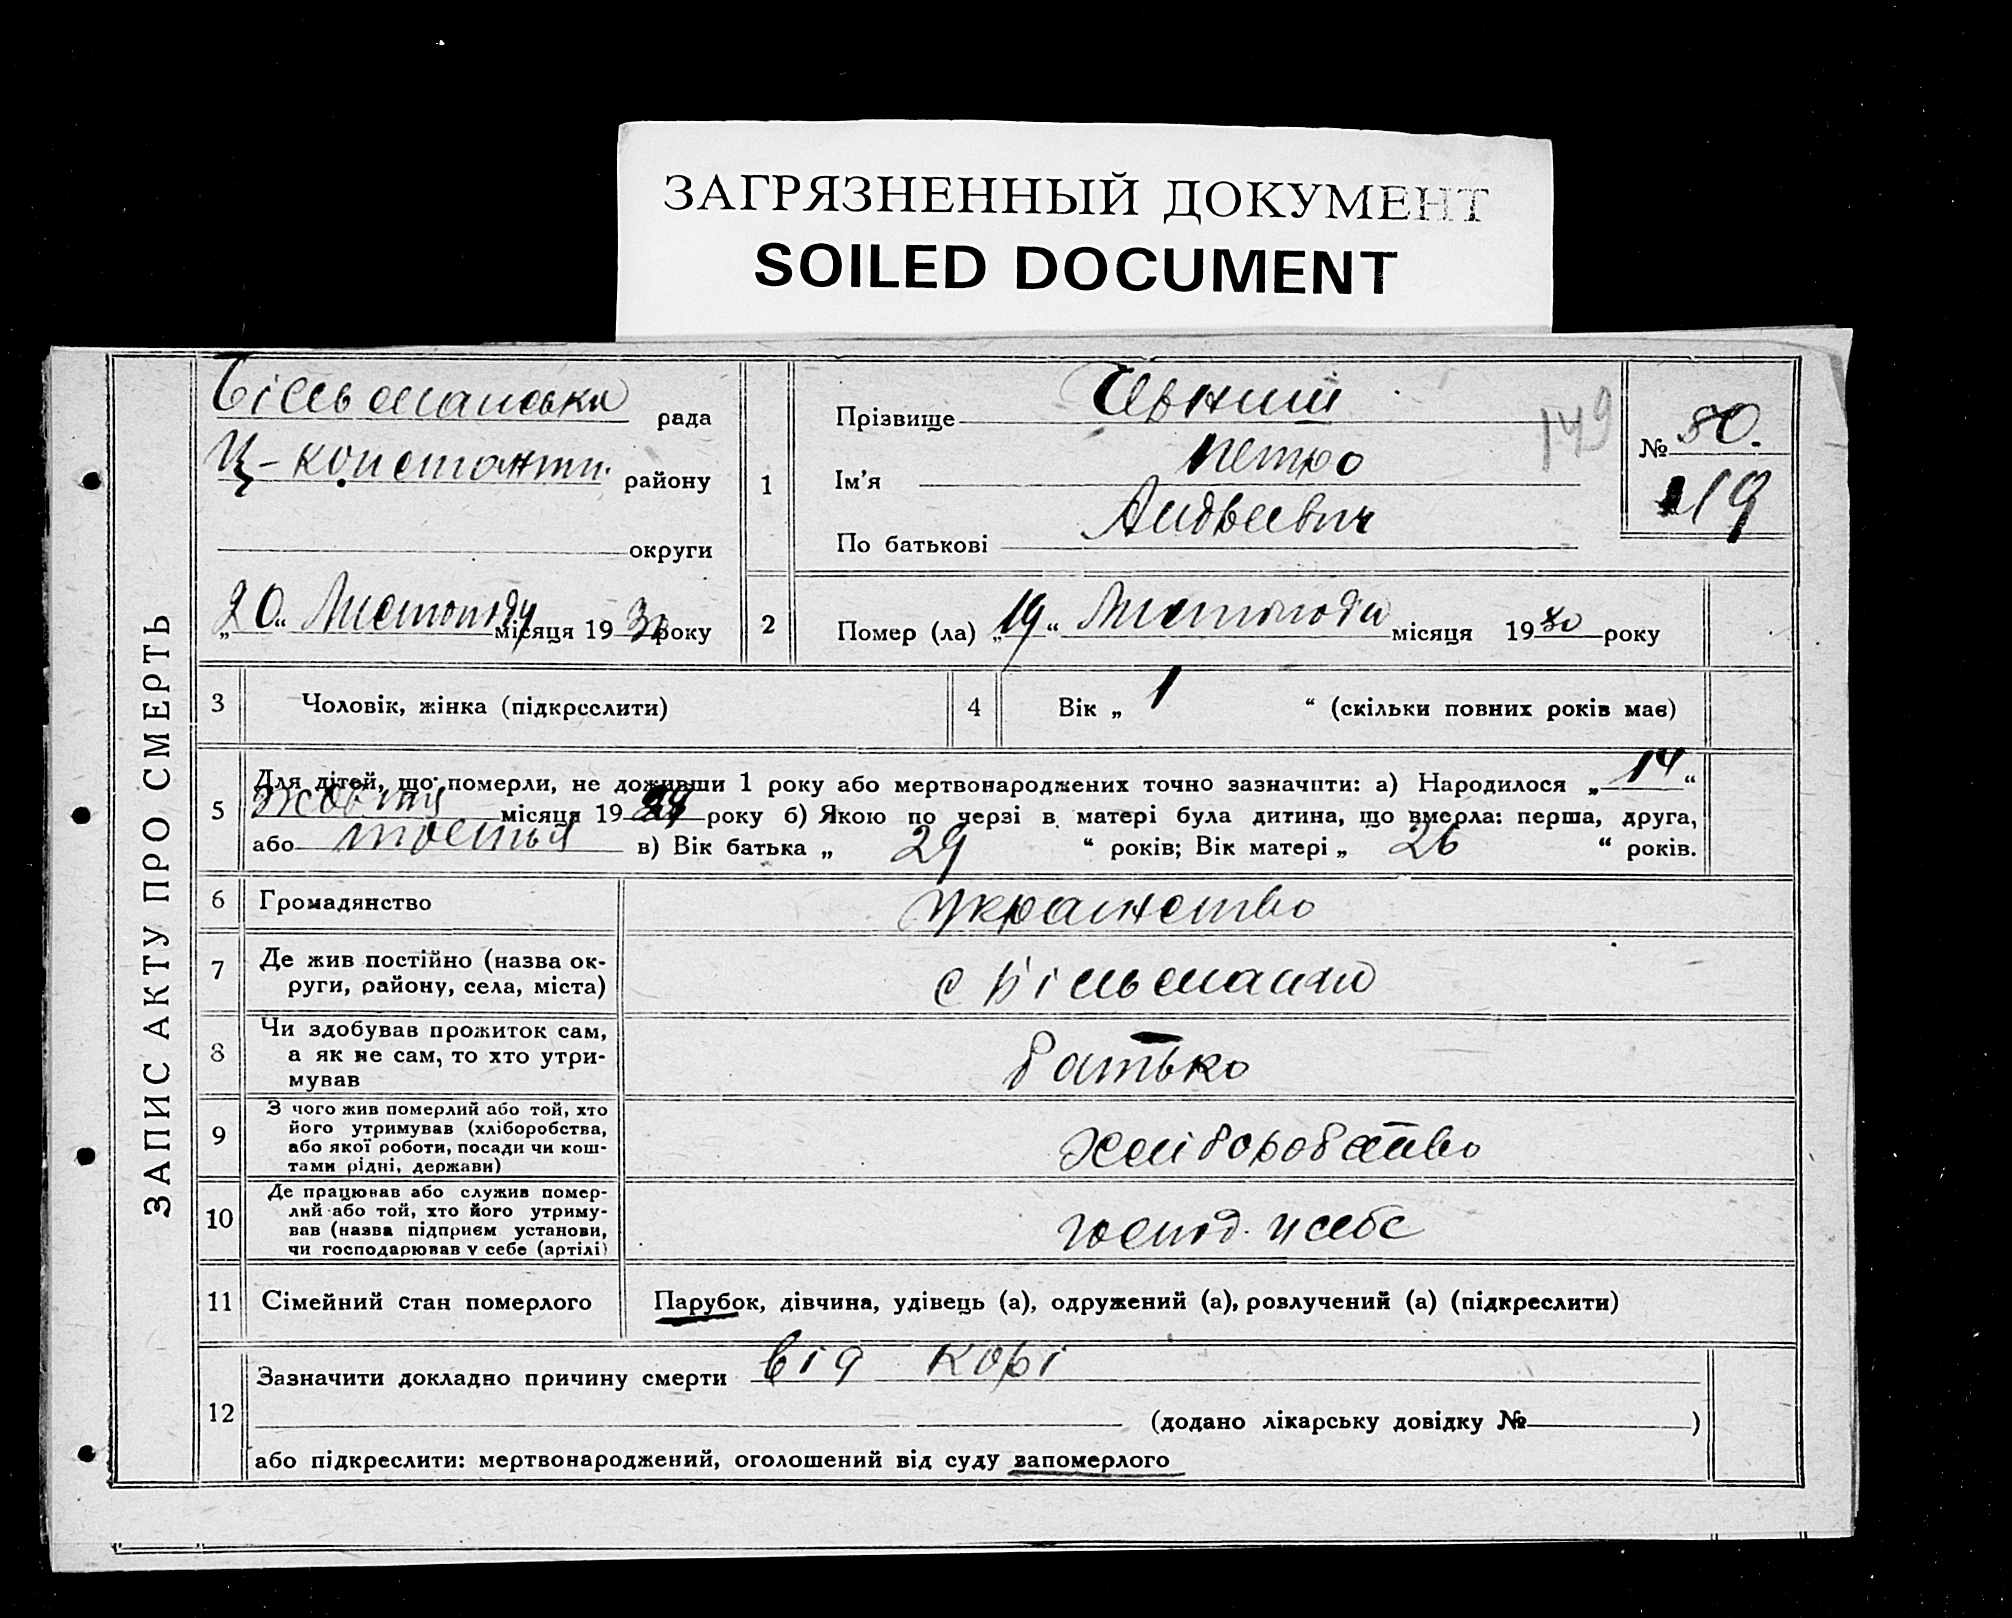 ЗАГРЯЗНЕННЫЙ ДОКУМЕНТ
SOILED DOCUMENT
ЗАПИС АКТУ ПРО СМЕРТЬ
Більманська рада
Ц-константи. району
округи
„20“ Листопаду місяця 19 року
1
Прізвище
Ім'я Петро
По батькові Андреевич
149
№ 80.
119
2
Помер (ла) „19“ Листопада місяця 1930 року
3 Чоловік, жінка (підкреслити)
4 Вік „1“ (скільки повних років має)
5
Для дітей, що померли, не доживши 1 року або мертвонароджених точно зазначити: а) Народилося „14“
Жовтня місяця 19 року б) Якою по черзі в матері була дитина, що вмерла: перша, друга,
або третья в) Вік батька „29“ років; Вік матері „26“ років.
6 Громадянство
7 Де жив постійно (назва ок-
руги, району, села, міста)
с Більманка
8 Чи здобував прожиток сам,
а як не сам, то хто утри-
мував
батько
9 З чого жив померлий або той, хто
його утримував (хліборобства,
або якої роботи, посади чи кош-
тами рідні, держави)
хліборобство
10 Де працював або служив помер-
лий або той, хто його утриму-
вав (назва підприєм установи,
чи господарював у себе (артілі)
господ. у себе
11 Сімейний стан померлого
Парубок, дівчина, удівець (а), одружений (а), розлучений (а) (підкреслити)
12
Зазначити докладно причину смерти від корі
(додано лікарську довідку № )
або підкреслити: мертвонароджений, оголошений від суду запомерлого